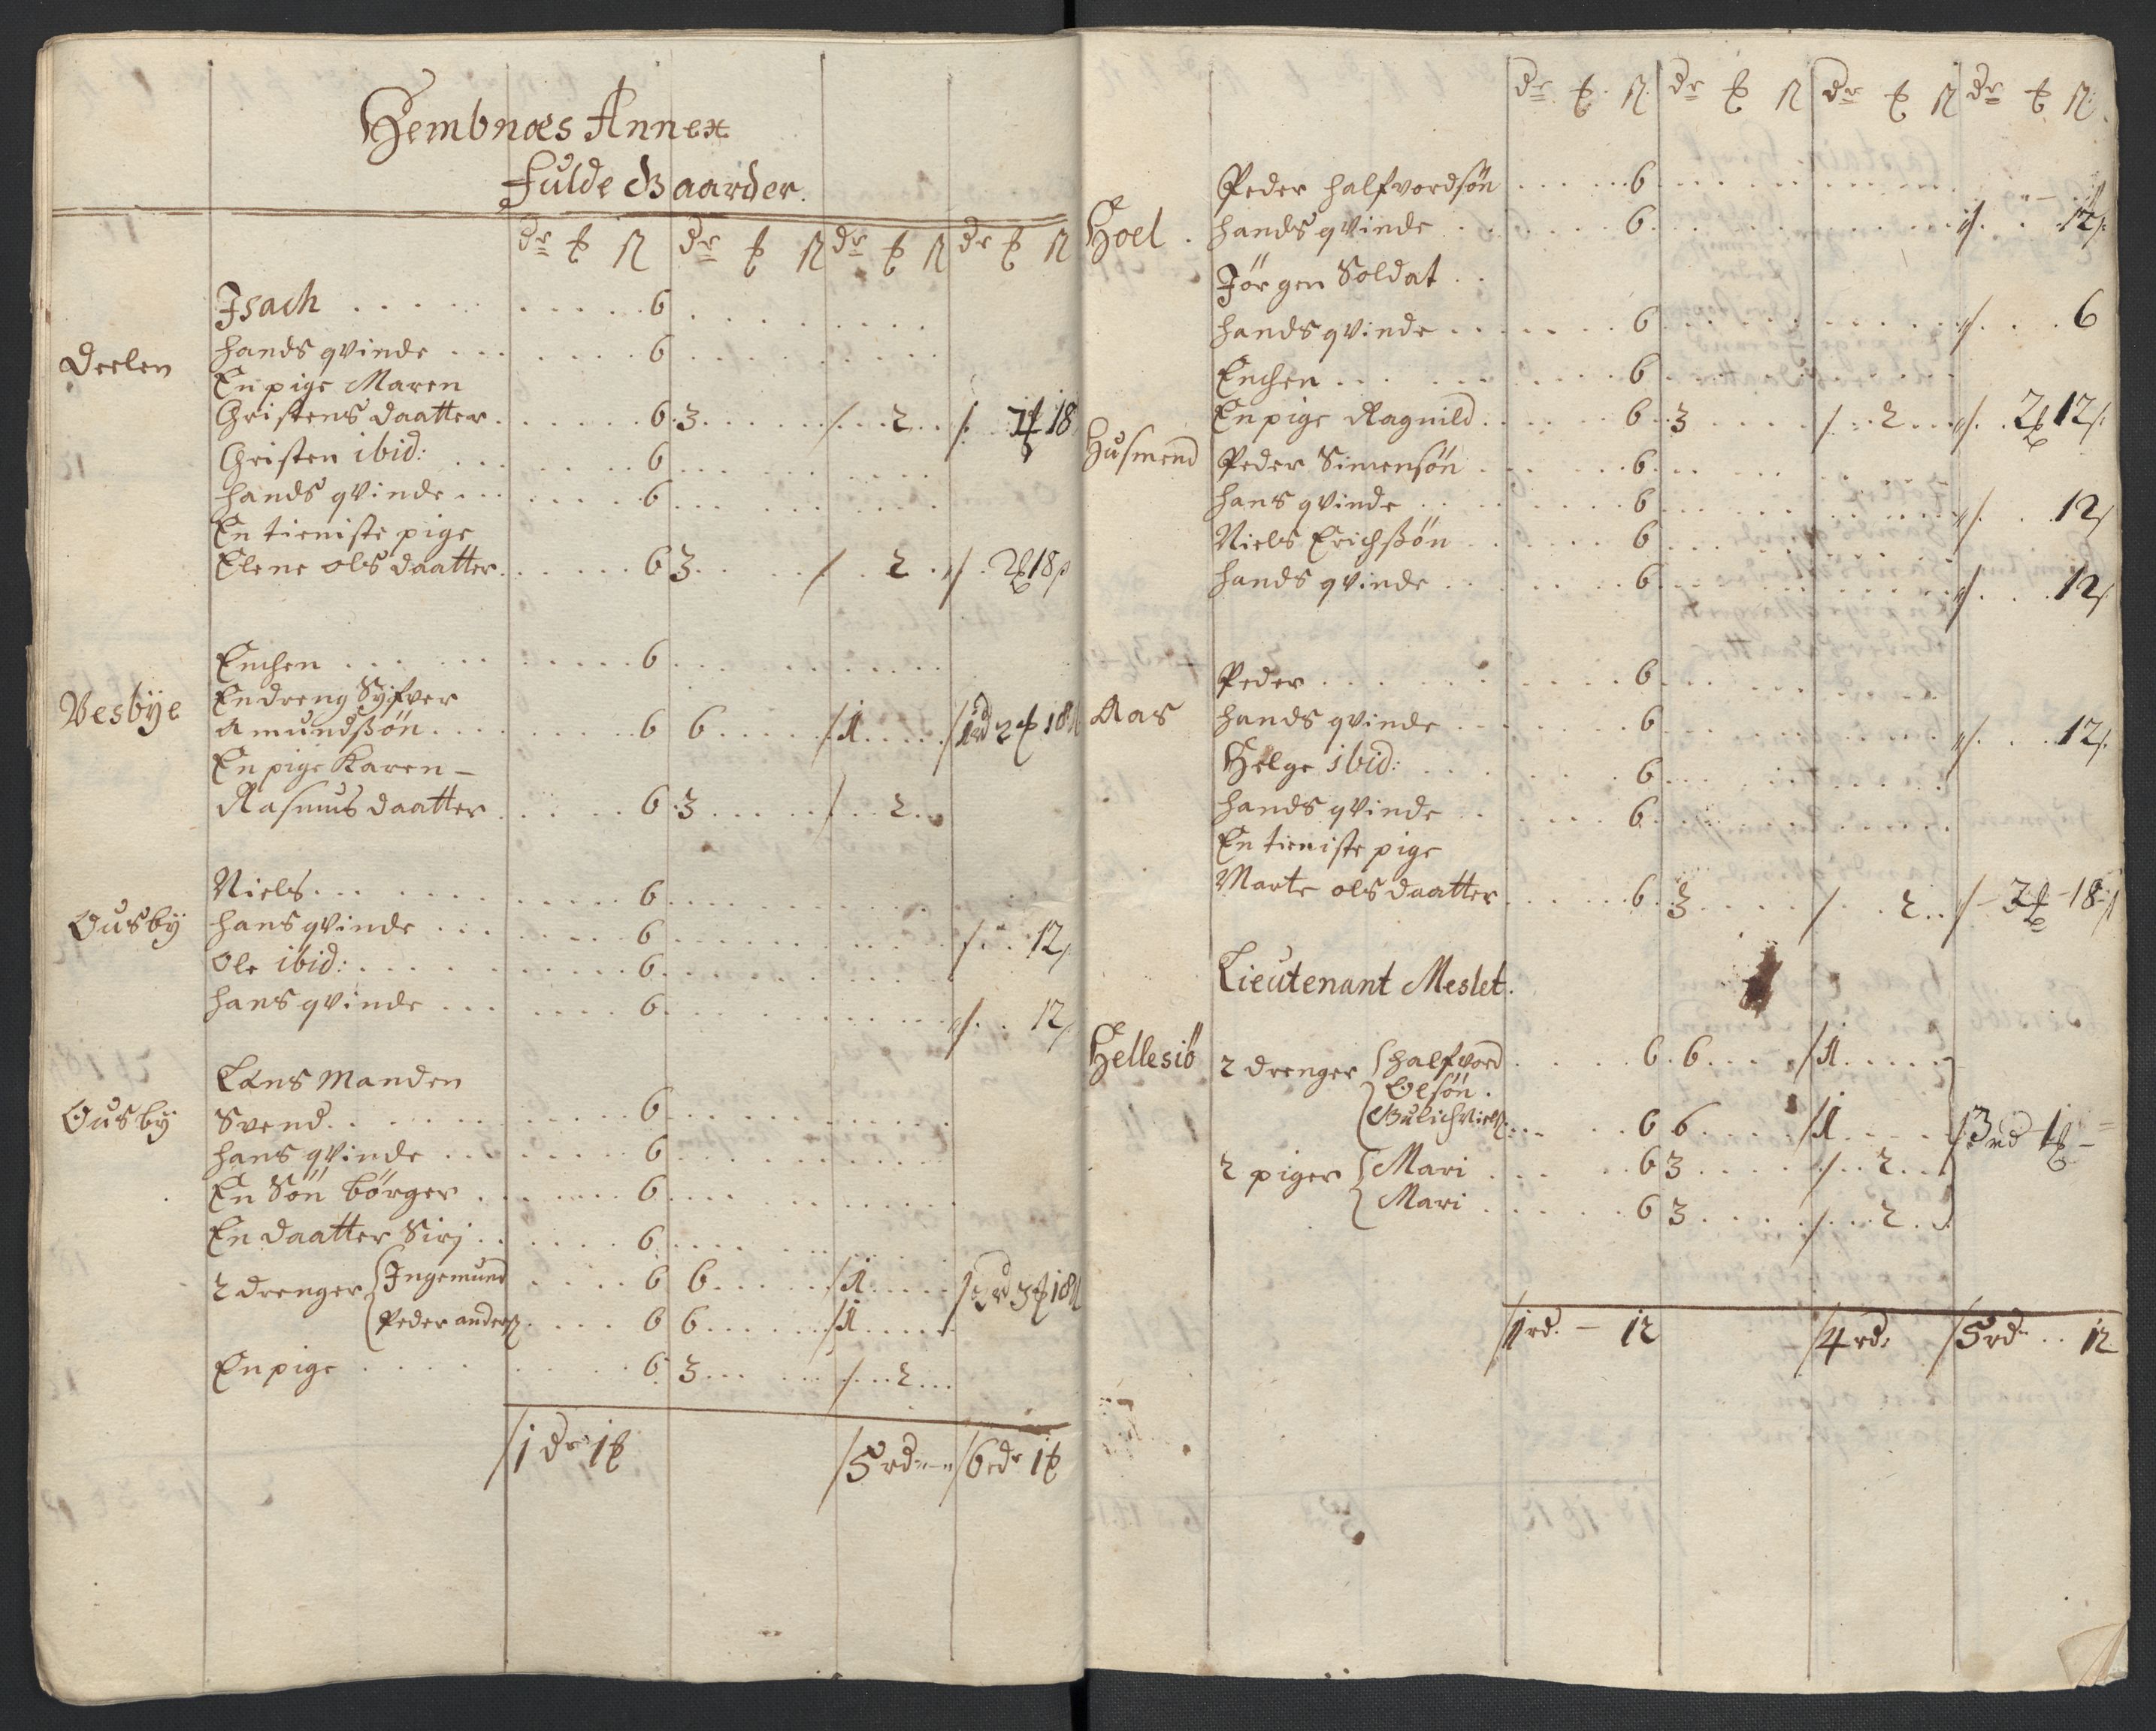 Hembnæs Annex
Fulde Gaarder.
dr ß dr ß dr ß dr ß
Deelen
Isach 6
hands qvinde 6
En pige Maren
Christens daatter 6 3 / 2 / 18
Christen ibid: 6
hands qvinde 6
En tieniste pige
Elene olsdaatter 6 3 / 2 / 2 18
Vesbye
Enchen 6
En dreng Syfver
Amundßøn 6 6 /1 /1rd 2 18
En pige Karen -
Rasmusdaatter 6 3 / 2
Ousby
Niels 6
hans qvinde 6 / 12
Ole ibid: 6
hans qvinde 6 / 12
Lans Manden
Ousby
Svend 6
hans qvinde 6
En Søn børger 6
En daatter Sirj 6
2 drenger Ingemund 6 6 /1 /3rd 3 18
Peder anders 6 6 /1
En pige 6 3 / 2
/1 dr 1 /5 rd /6 rd 1
dr ß dr ß dr ß dr ß
Peder halfvordsøn 6
Hoel
hands qvinde 6 / 12
Jørgen Soldat
hands qvinde 6 / 6
Enchen 6
En pige Ragnild 6 3 / 2 / 2 12
Husmend
Peder Simensøn 6
hans qvinde 6 / 12
Niels Erichßøn 6
hands qvinde 6 / 12
Peder 6
Aas
hands qvinde 6 / 12
Helge ibid: 6
hands qvinde 6
En tieniste pige
Marte olsdaatter 6 3 / 2 / 18
Lieutenant Meslet.
Hellesiö
2 drenger halfvord 6 6 /1
Olsøn.
Gulich Niels 6 6 /1 /3 rd 1
2 piger Mari 6 3 / 2
Mari 6 3 / 2
/1 rd. - 12 /4 rd: /5 rd 12